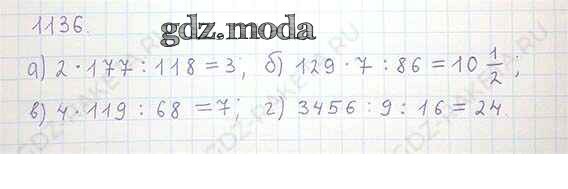 1136.
gdz.moda
а) 2 · 177 : 118 = 3; б) 129 · 7 : 86 = 10 1/2;
в) 4 · 119 : 68 = 7; г) 3456 : 9 : 16 = 24.